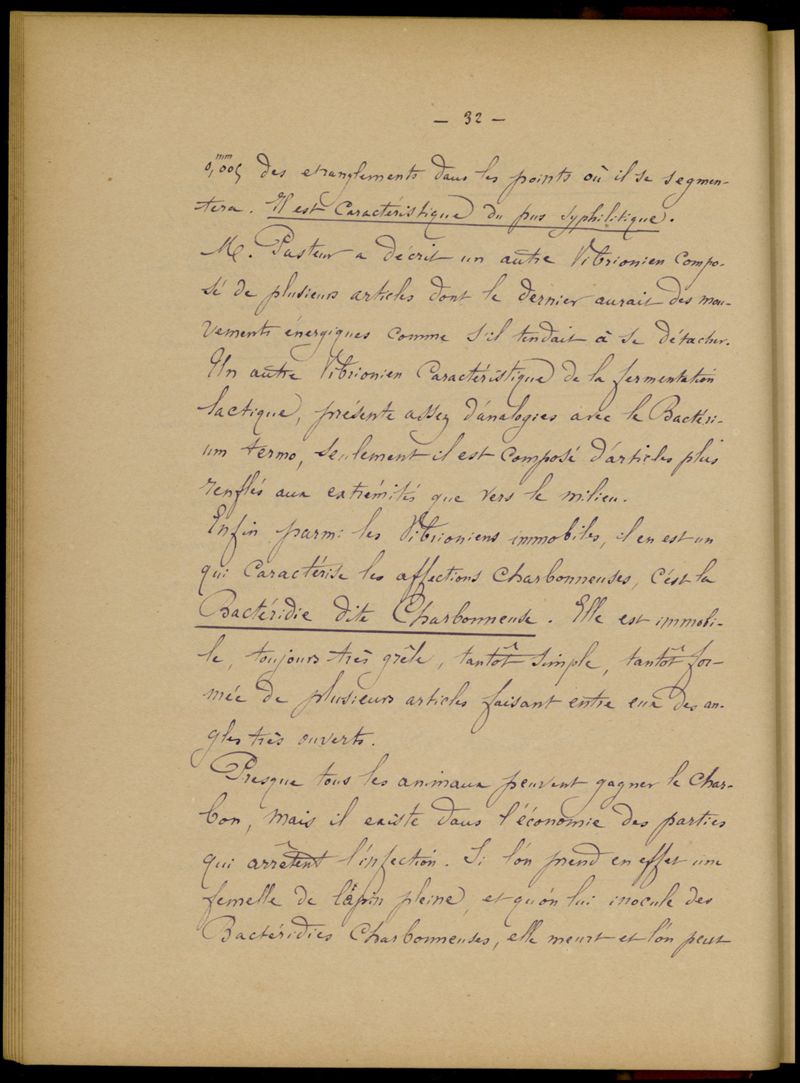 — 32 —
0,mm005 des etranglements dans les points où il se segmen-
tera. Il est Caractéristique du pus syphilitique.
M. Pasteur a décrit un autre Vibrionien Compo-
sé de plusieurs articles dont le dernier aurait des mou-
vements énergiques comme s'il tendait à se détacher.
Un autre Vibrionien Caractéristique de la fermentation
lactique, présente assez d'analogies avec le Bactéri-
um termo, seulement il est composé d'articles plus
renflés aux extrémités que vers le milieu.
Enfin parmi les Vibrioniens immobiles, il en est un
qui Caractérise les affections charbonneuses, c'est la
Bactéridie dite Charbonneuse. Elle est immobi-
le, toujours très grêle, tantôt simple, tantôt for-
mée de plusieurs articles faisant entre eux des an-
gles très ouverts.
Presque tous les animaux peuvent gagner le Char-
bon, mais il existe dans l'économie des parties
qui arrêtent l'infection. Si l'on prend en effet une
femelle de lapin pleine, et qu'on lui inocule des
Bactéridies Charbonneuses, elle meurt et l'on peut